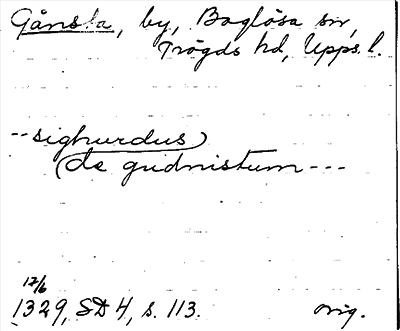 Gånsta, by, Boglösa sn,
Trögds hd, Upps. l.
-- sighurdus)
(de gudnistum ---
12/6
1329, SD 4, s. 113. orig.